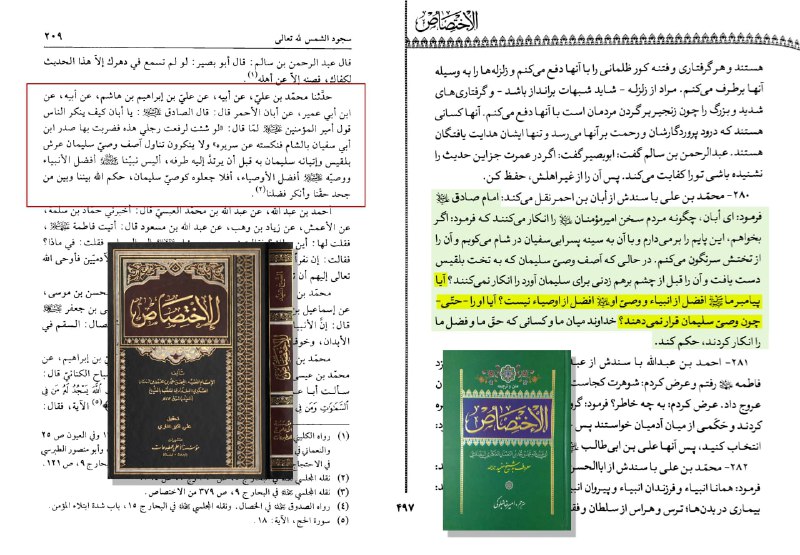 سجود الشمس لله تعالى
۲۰۹
قال عبد الرحمن بن سالم: قال أبو بصير: لو لم تسمع في دهرك إلاّ هذا الحديث
لكفاك، فصنه إلاّ عن أهله(۱).
حدّثنا محمّد بن عليّ، عن أبيه، عن عليّ بن إبراهيم بن هاشم، عن أبيه، عن
ابن أبي عمير، عن أبان الأحمر قال: قال الصادق ﷺ: يا أبان كيف ينكر الناس
قول أمير المؤمنين ﷺ لمّا قال: «لو شئت لرفعت رجلي هذه فضربت بها صدر ابن
أبي سفيان بالشام فنكسته عن سريره» ولا ينكرون تناول آصف وصيّ سليمان عرش
بلقيس وإتيانه سليمان به قبل أن يرتدّ إليه طرفه، أليس نبيّنا ﷺ أفضل الأنبياء
ووصيّه ﷺ أفضل الأوصياء، أفلا جعلوه كوصيّ سليمان، حكم الله بيننا وبين من
جحد حقّنا وأنكر فضلنا(۲).
أحمد بن عبد الله، عن عبد الله بن محمّد العبسيّ قال: أخبرني حمّاد بن سلمة،
عن الأعمش، عن زياد بن وهب، عن عبد الله بن مسعود قال: أتيت فاطمة
فقلت لها: أين
فقلت: في ماذا؟
فقالت: إن نفراً
الآدميّين فأوحى الله
تعالى إليهم أن
محمّد بن
حسن بن موسى،
عن إسماعيل بن
بي جعفر
قال: إنّ الأنبياء
ال: السقم في
الأبدان، وخوف
محمّد بن
ن إبراهيم، عن
محمّد بن عيسى
باح الكنانيّ قال:
سألت أبا
ٱللَّهَ يَسْجُدُ لَهُۥ مَن فِي
ٱلسَّمَٰوَٰتِ وَمَن فِي
(۵) الآية، فقال:
الإختصاص
تأليف
تحقيق
علي أكبر الغفاري
الإختصاص
(۱) رواه الكليني
وفي العيون ص ۲۵
والنعماني في
وأبو منصور الطبرسي
في الاحتجاج
(۲) نقله المجلسي
البحار ج ۹، ص ۱۲۱.
(۳) نقله المجلسي في البحار ج ۹، ص ۳۷۹ من الاختصاص.
(۴) رواه الصدوق في الخصال. ونقله المجلسي في البحار ج ۱۵، باب شدة ابتلاء المؤمن.
(۵) سورة الحج، الآية: ۱۸.
الإختصاص
هستند و هر گرفتاری و فتنه کور ظلمانی را با آنها دفع می‌کنم و زلزله‌ها را به وسیله
آنها برطرف می‌کنم. مراد از زلزله - شاید شبهات برانداز باشد - و گرفتاری‌های
شدید و بزرگ را چون زنجیر بر گردن مردمان است با آنها دفع می‌کنم. آنها کسانی
هستند که درود پروردگارشان و رحمت بر آنها می‌رسد و تنها ایشان هدایت یافتگان
هستند. عبدالرحمن بن سالم گفت: ابوبصیر گفت: اگر در عمرت جز این حدیث را
نشنیده باشی تو را کفایت می‌کند. پس آن را از غیر اهلش، حفظ کن.
۲۸۰- محمّد بن علی با سندش از أبان بن احمر نقل می‌کند: امام صادق
فرمود: ای أبان، چگونه مردم سخن امیرمؤمنان را انکار می‌کنند که فرمود: اگر
بخواهم، این پایم را برمی‌دارم و با آن به سینه پسر ابی سفیان در شام می‌کوبم و آن را
از تختش سرنگون می‌کنم. در حالی که آصف وصیّ سلیمان که به تخت بلقیس
دست یافت و آن را قبل از چشم برهم زدنی برای سلیمان آورد را انکار نمی‌کنند؟ آیا
پیامبر ما ﷺ افضل از انبیاء و وصیّ او افضل از اوصیاء نیست؟ آیا او را - حتّی -
چون وصیّ سلیمان قرار نمی‌دهند؟ خداوند میان ما و کسانی که حقّ ما و فضل ما
را انکار کردند، حکم کند.
۲۸۱- احمد بن عبدالله با سندش از
فاطمه رفتم و عرض کردم: شوهرت کجاست
عروج داد. عرض کردم: به چه خاطر؟ فرمود:
کردند و حَکَمی از میان آدمیان خواستند پس
انتخاب کنید، پس آنها علی بن ابی طالب
۲۸۲- محمّد بن علی با سندش از اباالحسن
فرمود: همانا انبیاء و فرزندان انبیاء و پیروان انبیاء
بیماری در بدن‌ها؛ ترس و هراس از سلطان و فق
متن و ترجمه
الإختصاص
معروف به شیخ مفید
۴۹۷